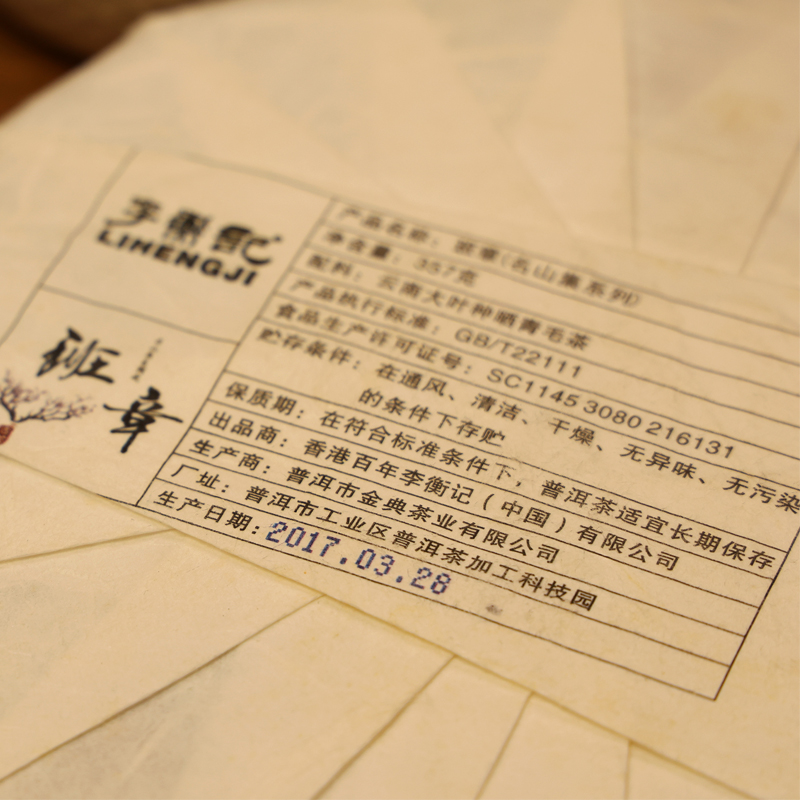 李衡記
LIHENGJI
班章
产品名称：班章(名山集系列)
净含量：357克
配料：云南大叶种晒青毛茶
产品执行标准：GB/T22111
食品生产许可证号：SC11453080216131
贮存条件：在通风、清洁、干燥、无异味、无污染
的条件下存贮
保质期：在符合标准条件下，普洱茶适宜长期保存
出品商：香港百年李衡记（中国）有限公司
生产商：普洱市金典茶业有限公司
厂址：普洱市工业区普洱茶加工科技园
生产日期:2017.03.28